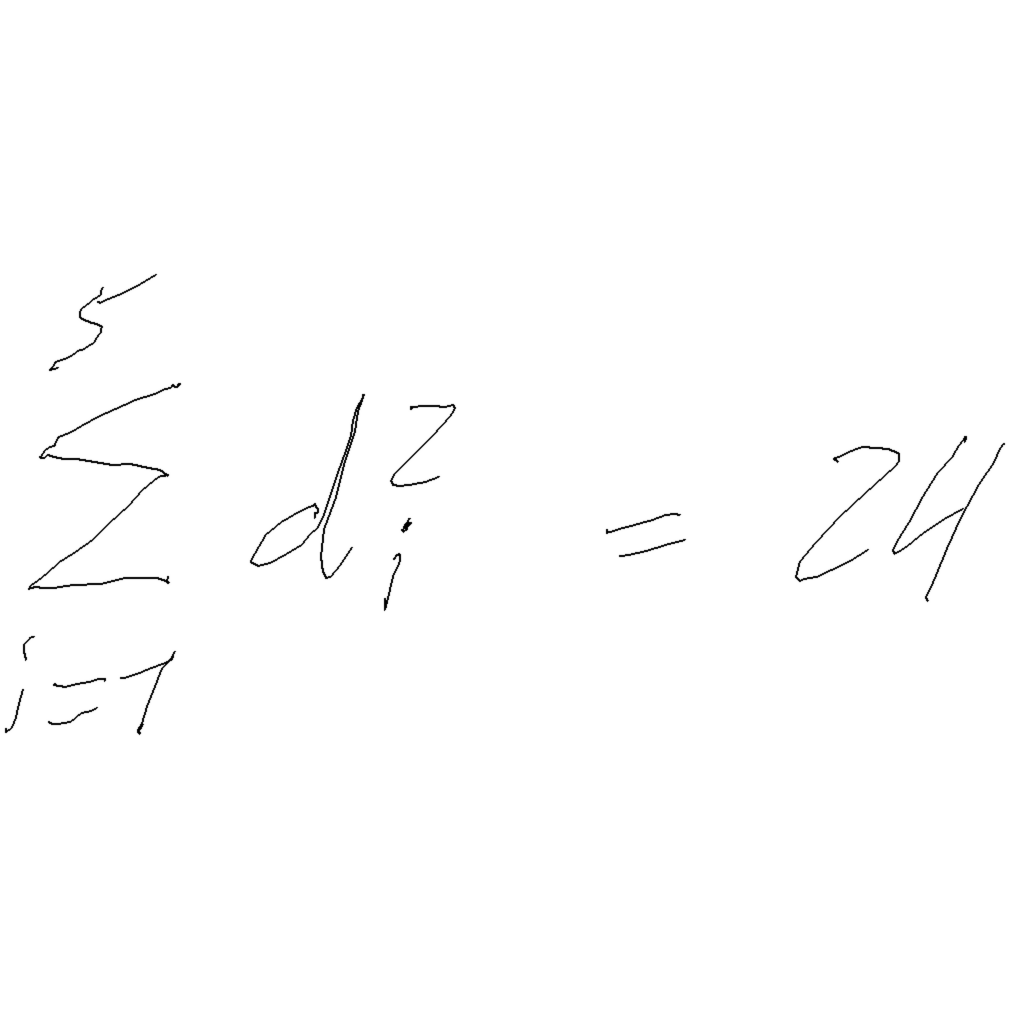 \sum_{i=1}^{5} d_i^2 = 24